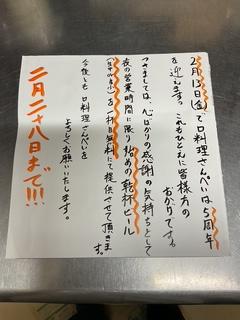 2月13日(金)で口料理さんぺいは5周年
を迎えます。これもひとえに皆様方の
おかげです。
つきましては、心ばかりの感謝の気持ちとして
夜の営業時間に限り始めの乾杯ビール
(生中or生小)を1杯無料にて提供させて頂きます。
今後とも口料理さんぺいを
よろしくお願いいたします。
二月二十八日まで!!!